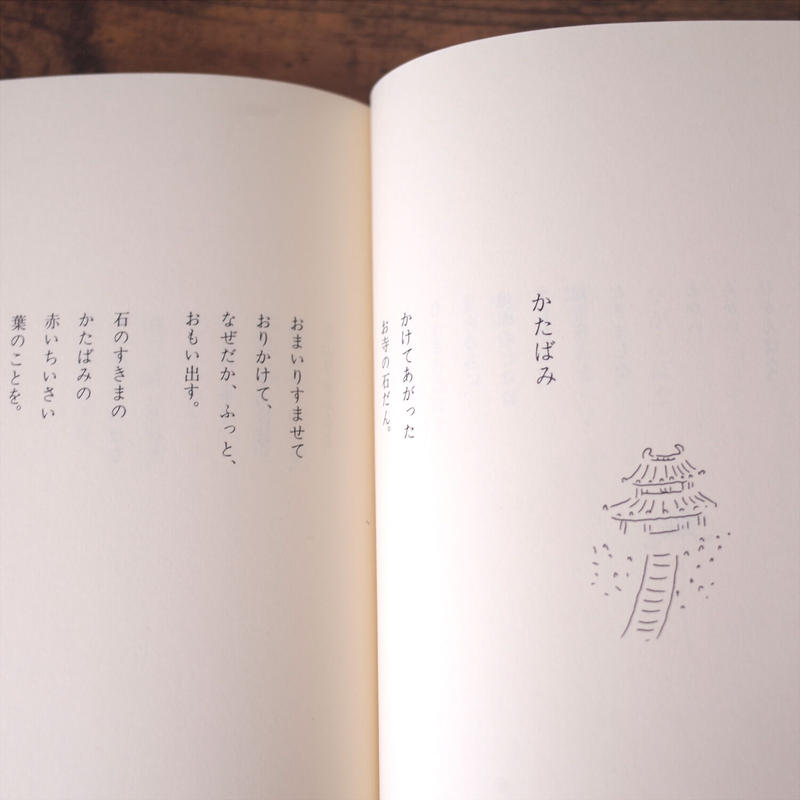 かたばみ
かけてあがった
お寺の石だん。
おまいりすませて
おりかけて、
なぜだか、ふっと、
おもい出す。
石のすきまの
かたばみの
赤いちいさい
葉のことを。